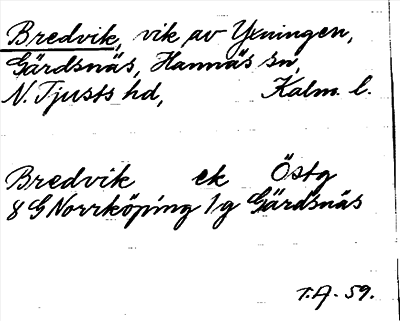 Bredvik, vik av Yxningen,
Gärdsnäs, Hannäs sn,
N. Tjusts hd, Kalm. l.
Bredvik ek Östg
8 G Norrköping 1/g Gärdsnäs
T.A. 59.